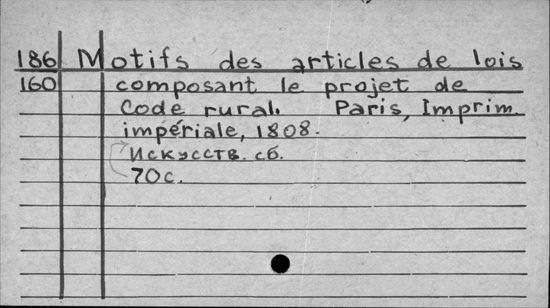 186 Motifs des articles de lois
160 composant le projet de
Code rural. Paris, Imprim.
impériale, 1808.
Искусств. сб.
70 с.